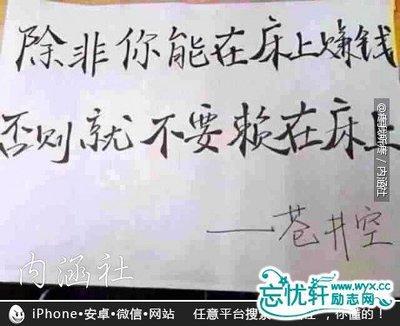 除非你能在床上赚钱
否则就不要赖在床上
——苍井空
内涵社
忘忧轩 www.wyx.cc
励志网
iPhone•安卓•微信•网站 任意平台搜索
，你懂的！